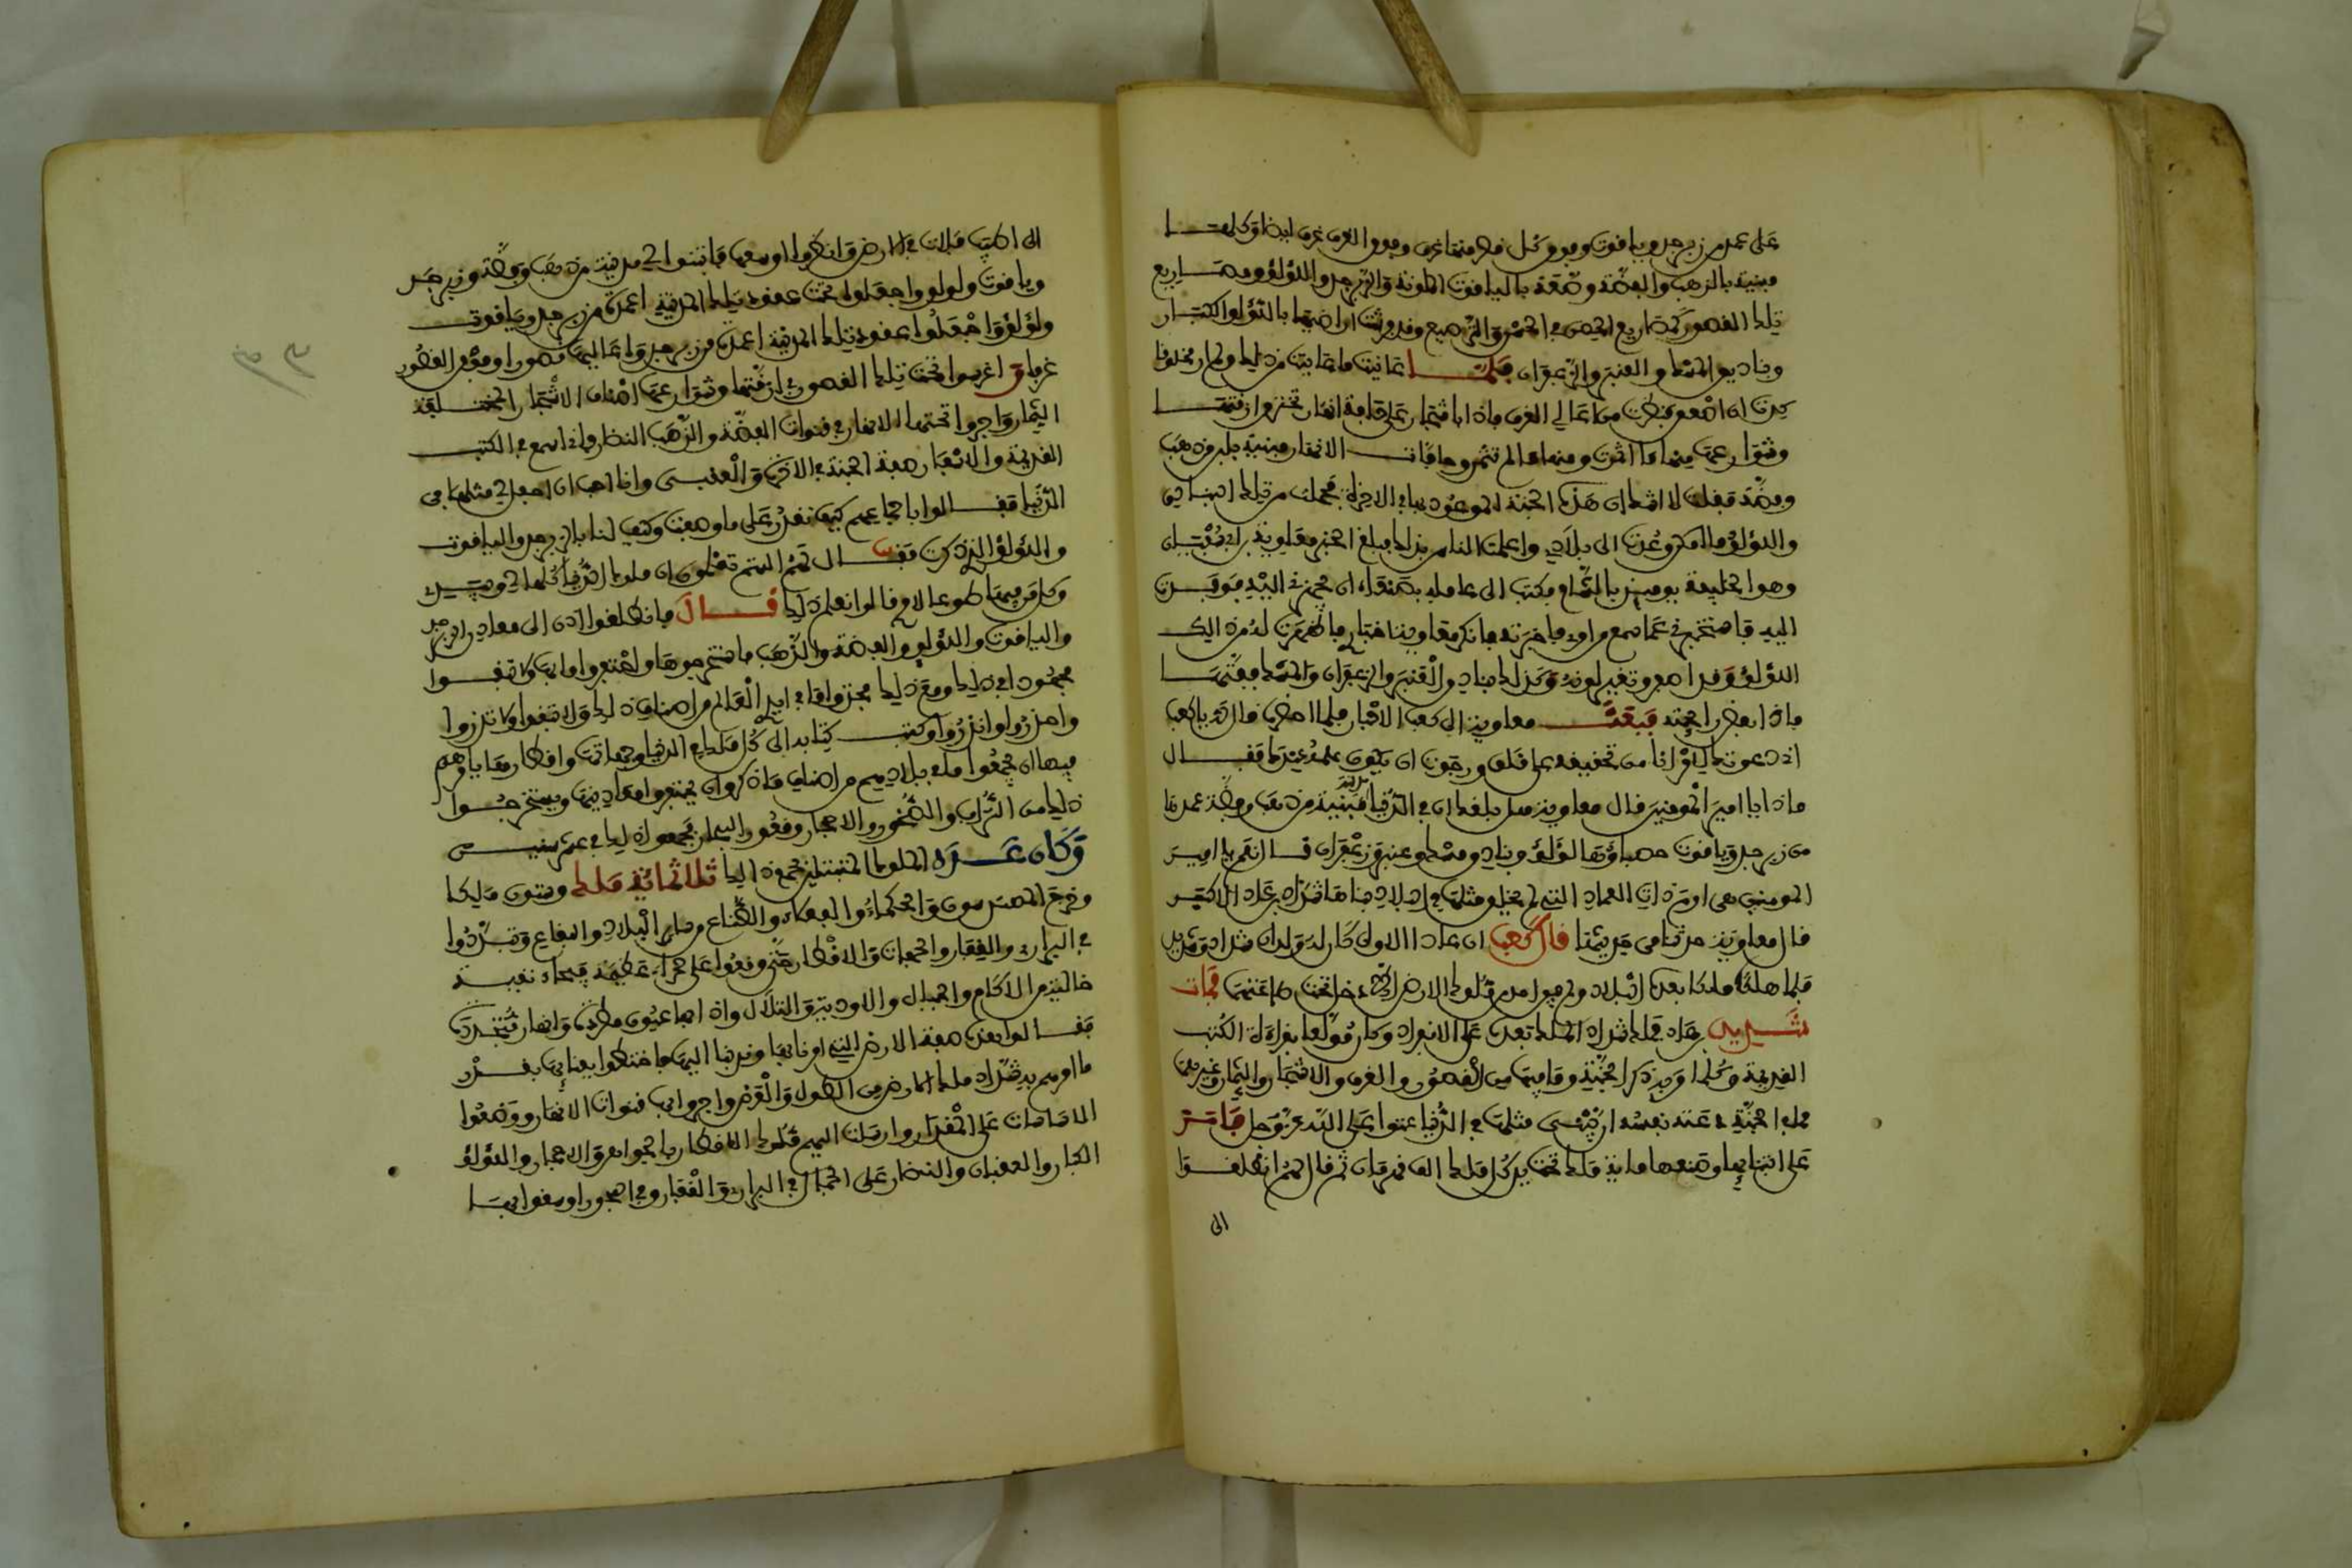 على عمد من زبرجد وياقوت وفوق كل قصر منها غرف وفوق الغرف غرف ايضا وكلها
مبنية بالذهب والفضة ومرصعة بالياقوت الملونة والزبرجد واللؤلؤ ومصاريع
تلك القصور كمصاريع الحصن في الحسن والترصيع وفرشت اراضيها باللؤلؤ الكبار
وبنادق المسك والعنبر والزعفران فلما عاينت ما عاينت من ذلك ولم ار مخلوقا
كدت ان اصعق فنظرت من اعالي الغرف فاذا باشجار على حافة انهار تخترق ازقتها
وشوارعها منها ما اثمرت ومنها ما لم تثمر وحافات الانهار مبنية بلبن من ذهب
وفضة فقلت لا شك ان هذه الجنة الموعود بها في الاخرة فحملت من تلك البنادق
واللؤلؤ ما امكن وعدت الى بلادي واعلمت الناس بذلك فبلغ الخبر معاوية بن ابي سفيان
وهو الخليفة يومئذ بالشام فكتب الى عامله بصنعاء ان يجهزني اليه فوفدت
اليه فاستخبرني عما سمع من امري فاخبرته فانكر معاوية اخباري فاظهرت له من ذلك
اللؤلؤ وقد اصفر وتغير لونه وكذلك بنادق العنبر والزعفران والمسك ففتها
فاذا بعض رائحة فبعث معاوية الى كعب الاحبار فلما حضر قال له يا كعب
اني دعوتك لامر انا من تحقيقه على قلق ورجوت ان يكون علمه عندك فقال
ما ذا يا امير المومنين قال معاوية هل بلغك ان في الدنيا مدينة مبنية من ذهب وفضة عمدها
من زبرجد وياقوت حصباؤها لؤلؤ وبنادق مسك وعنبر وزعفران قال نعم يا امير
المومنين هي ارم ذات العماد التي لم يخلق مثلها في البلاد بناها شداد بن عاد الاكبر
قال معاوية حدثنا من حديثها قال كعب ان عادا الاول كان له ولدان شداد وشديد
فلما هلك ملكا بعده البلاد ولم يبق احد من ملوك الارض الا دخل تحت طاعتهما فمات
شديد بن عاد فملك شداد الملك بعده على الانفراد وكان مولعا بقراءة الكتب
القديمة وكلما مر به ذكر الجنة وما فيها من القصور والغرف والاشجار والثمار وغيرها مما
في الجنة دعته نفسه ان يبني مثلها في الدنيا عتوا على الله عز وجل فامر
على ابتنائها وصنعها مائة ملك تحت يد كل ملك الف قهرمان ثم قال لهم انطلقوا
الى
الى اطيب فلات في الارض وانظروا اوسعها فابتنوا لي مدينة من ذهب وفضة وزبرجد
وياقوت ولولو واجعلوا تحت عقود تلك المدينة اعمدة من زبرجد وياقوت
ولؤلؤ واجعلوا عقود تلك المدينة اعمدة من زبرجد واعاليها قصورا وفوق القصور
غرفا واغرسوا تحت تلك القصور في ازقتها وشوارعها اصناف الاشجار المختلفة
الثمار واجروا تحتها الانهار في قنوات الفضة والذهب النظر فاني اسمع في الكتب
القديمة والاسفار صفة الجنة في الاخرة والعقبى وانا احب ان اجعل لي مثلها في
الدنيا فقالوا باجماعهم كيف نقدر على ما وصفت وكيف لنا بالزبرجد والياقوت
واللؤلؤ الذي ذكرت فقال لهم الستم تعلمون ان ملوك الدنيا كلها لي وبيدي
وكل من فيها طوع الامر قالوا نعلم ذلك قال فانطلقوا اذن الى معادن الزبرجد
والياقوت واللؤلؤ والفضة والذهب فاستخرجوها واحتفروا ما بها ولا تبقوا
مجهودا في ذلك ومع ذلك فخذوا ما في ايدي العالم من اصناف ذلك ولا تبقوا ولا تذروا
واحذروا وانذروا وكتب كتابه الى كل ملك في الدنيا وجهاتها واقطارها يامرهم
فيها ان يجمعوا ما في بلادهم من اصناف ما ذكر وان يحتفروا معادنها ويستخرجوا
ذلك من التراب والصخور والاحجار وقعور البحار فجمعوا ذلك في عشر سنين
وكان عدد الملوك المبتلين بجمع ذلك ثلاثمائة ملك وستون ملكا
وخرج المهندسون والحكماء والفعلاء والصناع من سائر البلاد والبقاع وتبددوا
في البراري والقفار والجهات والاقطار حتى وقعوا على صحراء عظيمة فيحاء نقية
خالية من الاكام والجبال والاودية والتلال واذا بها عيون مطردة وانهار متجددة
فقالوا هذه صفة الارض التي امرنا بها وندبنا اليها فاختطوا بفنائها بقدر
ما امرهم به شداد ملك الارض من الطول والعرض واجروا بها قنوات الانهار ووضعوا
الاساسات على المقدار وارسلت اليهم ملوك الاقطار بالجواهر والاحجار واللؤلؤ
الكبار والعقيان والنضار على الجمال في البراري والقفار وفي البحور اوسقوا بها